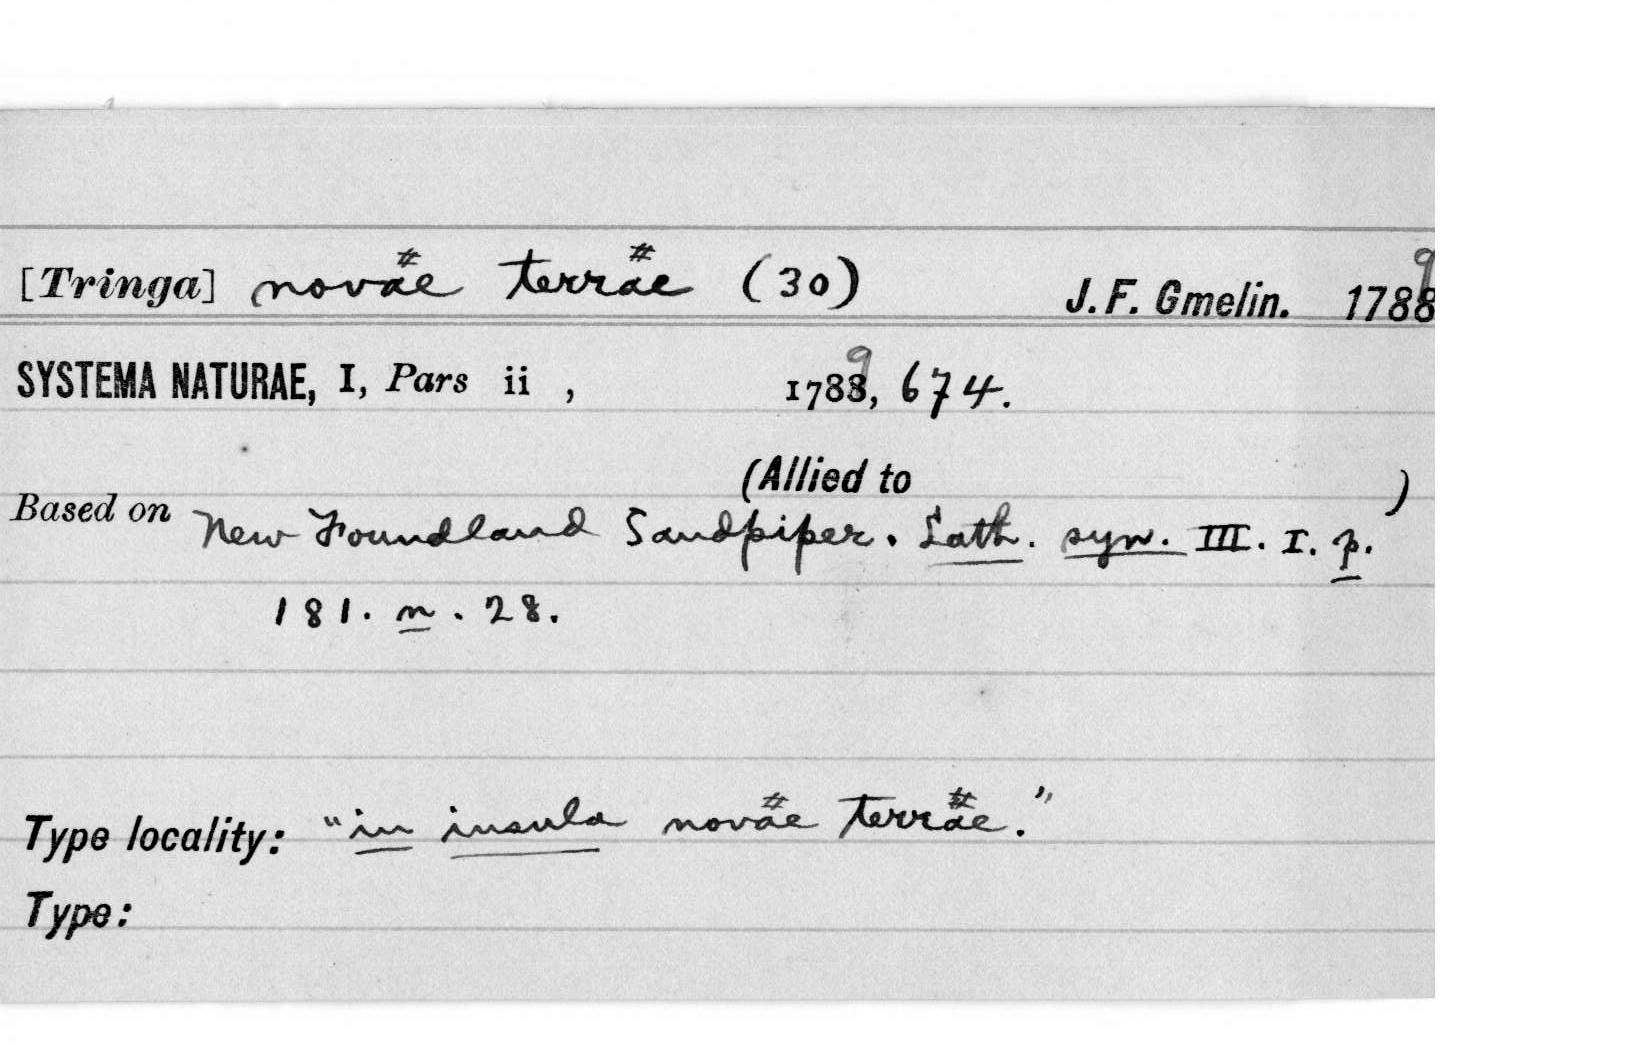 [Tringa] novae terrae (30) J. F. Gmelin. 1789
SYSTEMA NATURAE, I, Pars ii , 1789, 674.
(Allied to )
Based on New Foundland Sandpiper. Lath. syn. III. I. p.
181. n. 28.
Type locality: "in insula novae terrae."
Type: